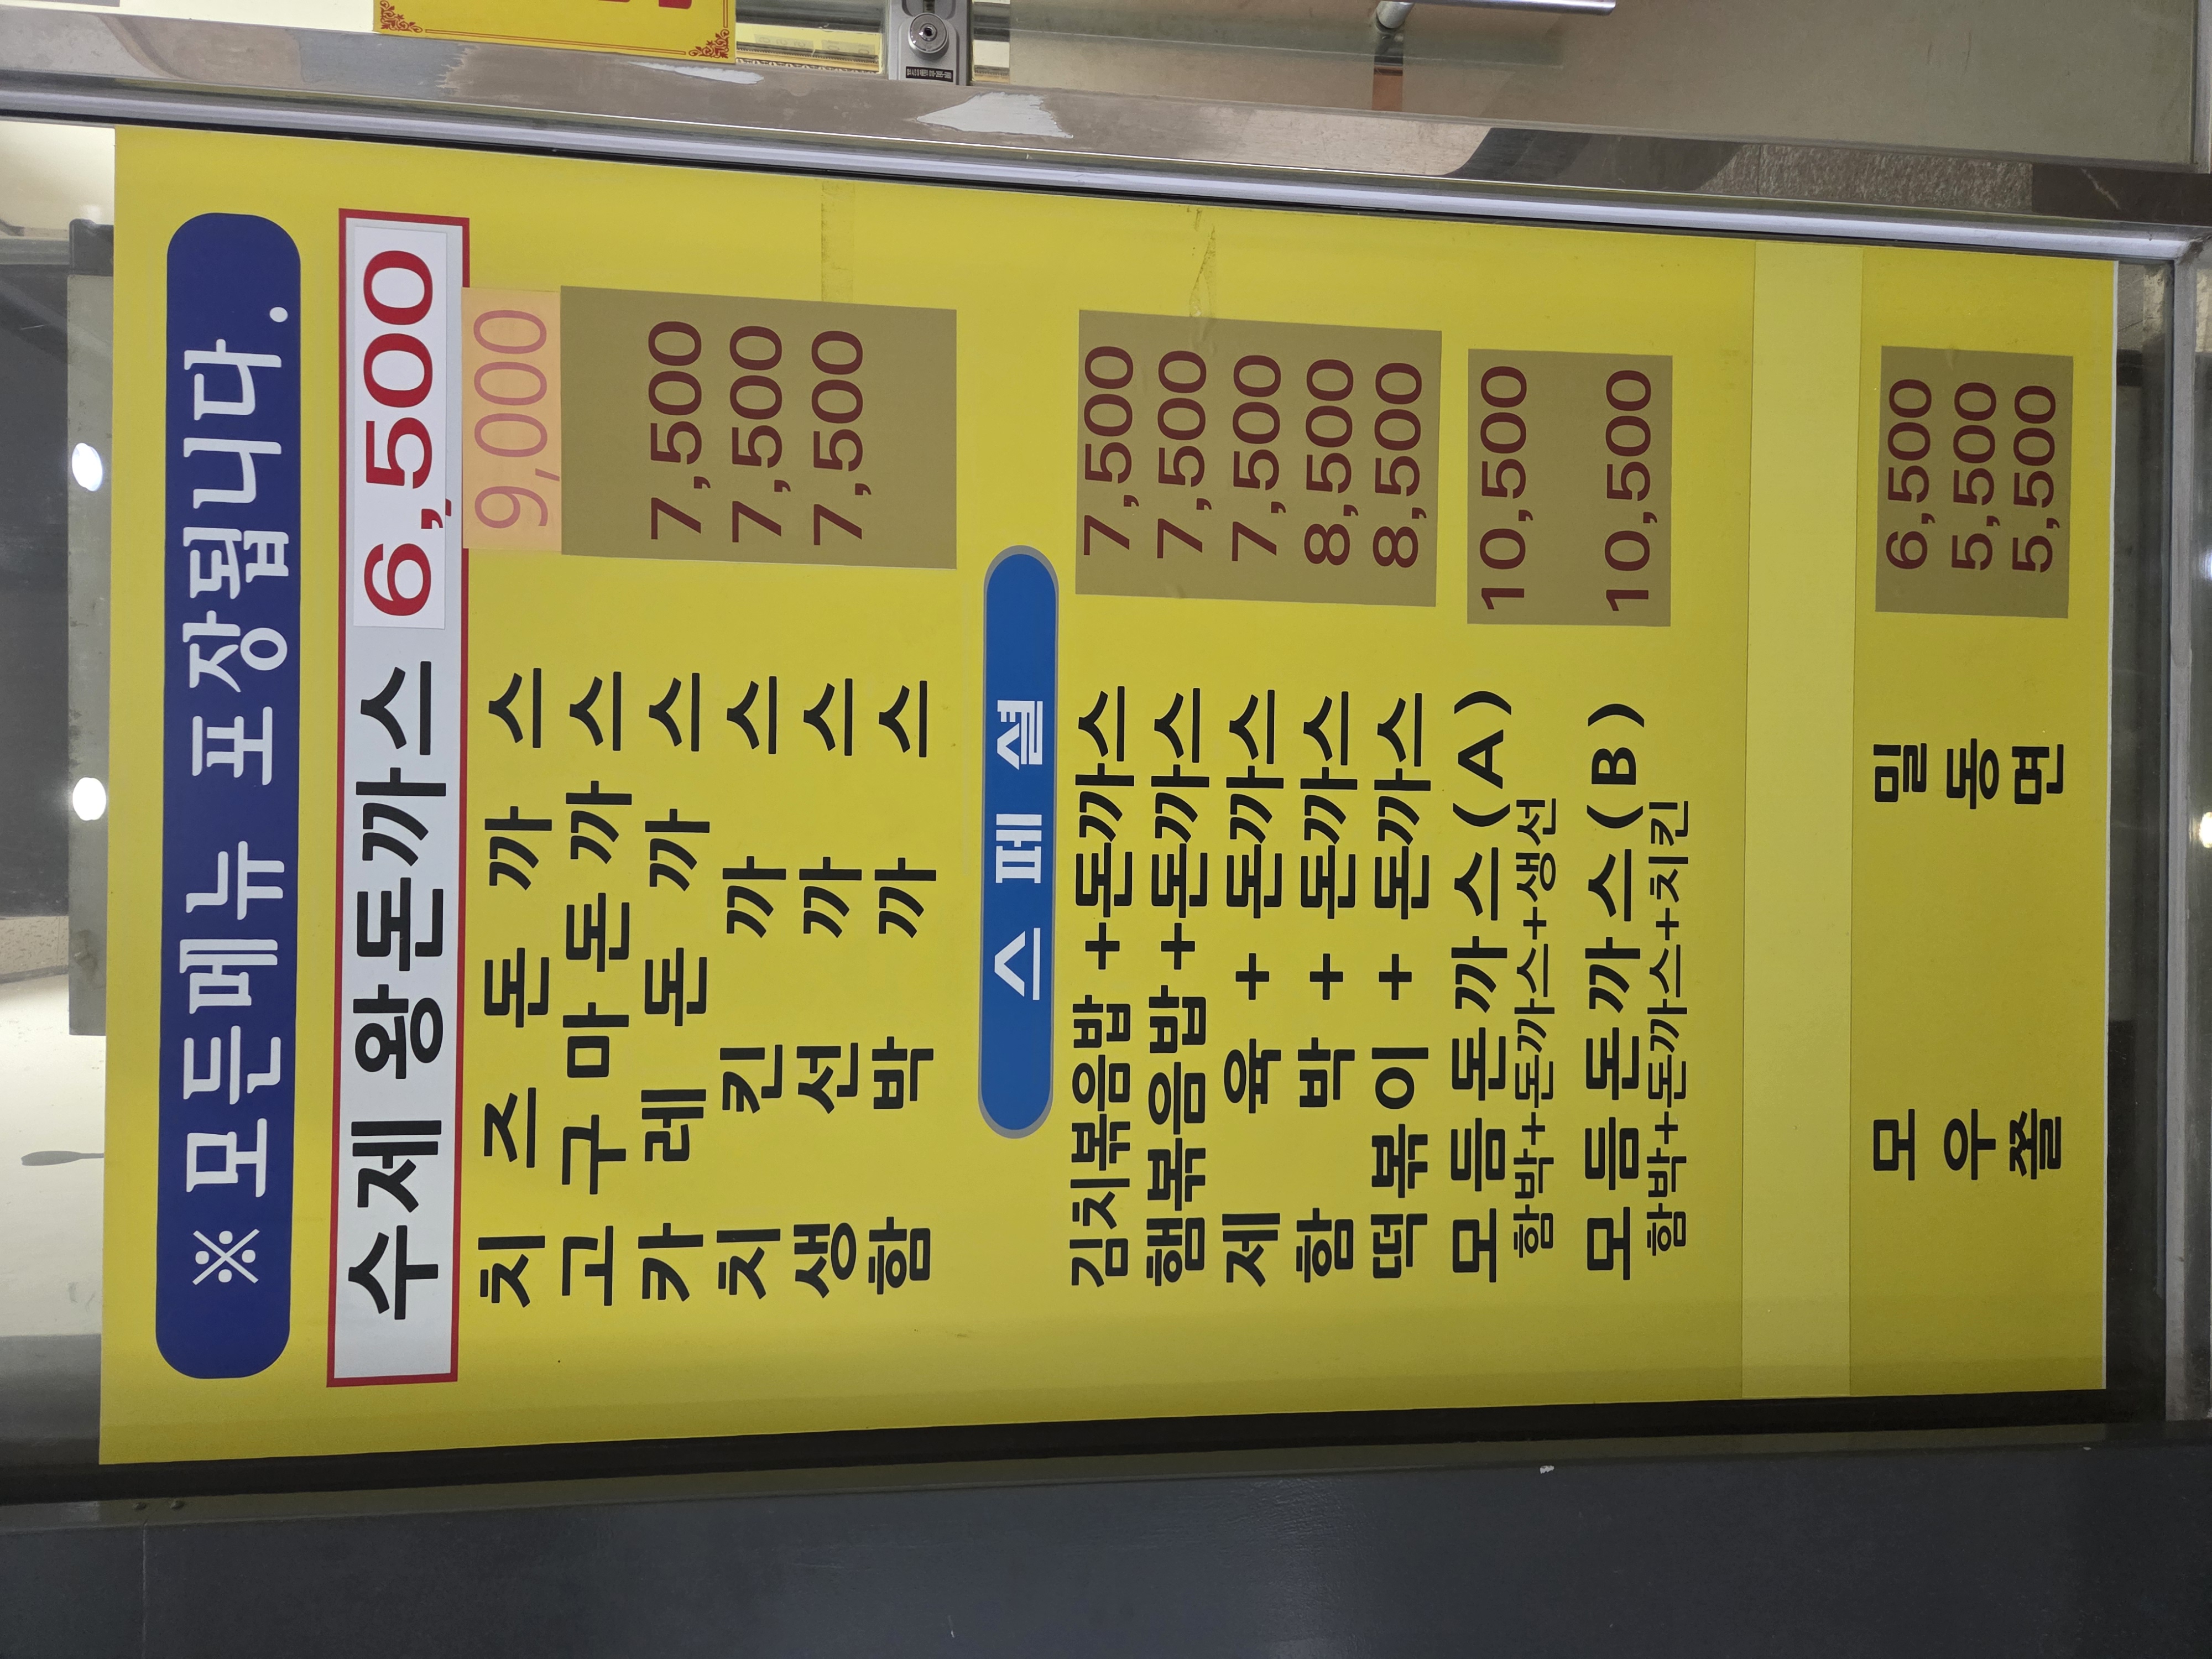 ※ 모든메뉴 포장됩니다.
수제 왕돈까스 6,500
치 즈 돈 까 스 9,000
고 구 마 돈 까 스
카 레 돈 까 스 7,500
치 킨 까 스 7,500
생 선 까 스 7,500
함 박 까 스
스 페 셜
김치볶음밥 +돈까스 7,500
햄볶음밥 +돈까스 7,500
제 육 + 돈까스 7,500
함 박 + 돈까스 8,500
떡 볶 이 + 돈까스 8,500
모 듬 돈 까 스 (A) 10,500
함박+돈까스+생선
모 듬 돈 까 스 (B) 10,500
함박+돈까스+치킨
모 밀 6,500
우 동 5,500
쫄 면 5,500